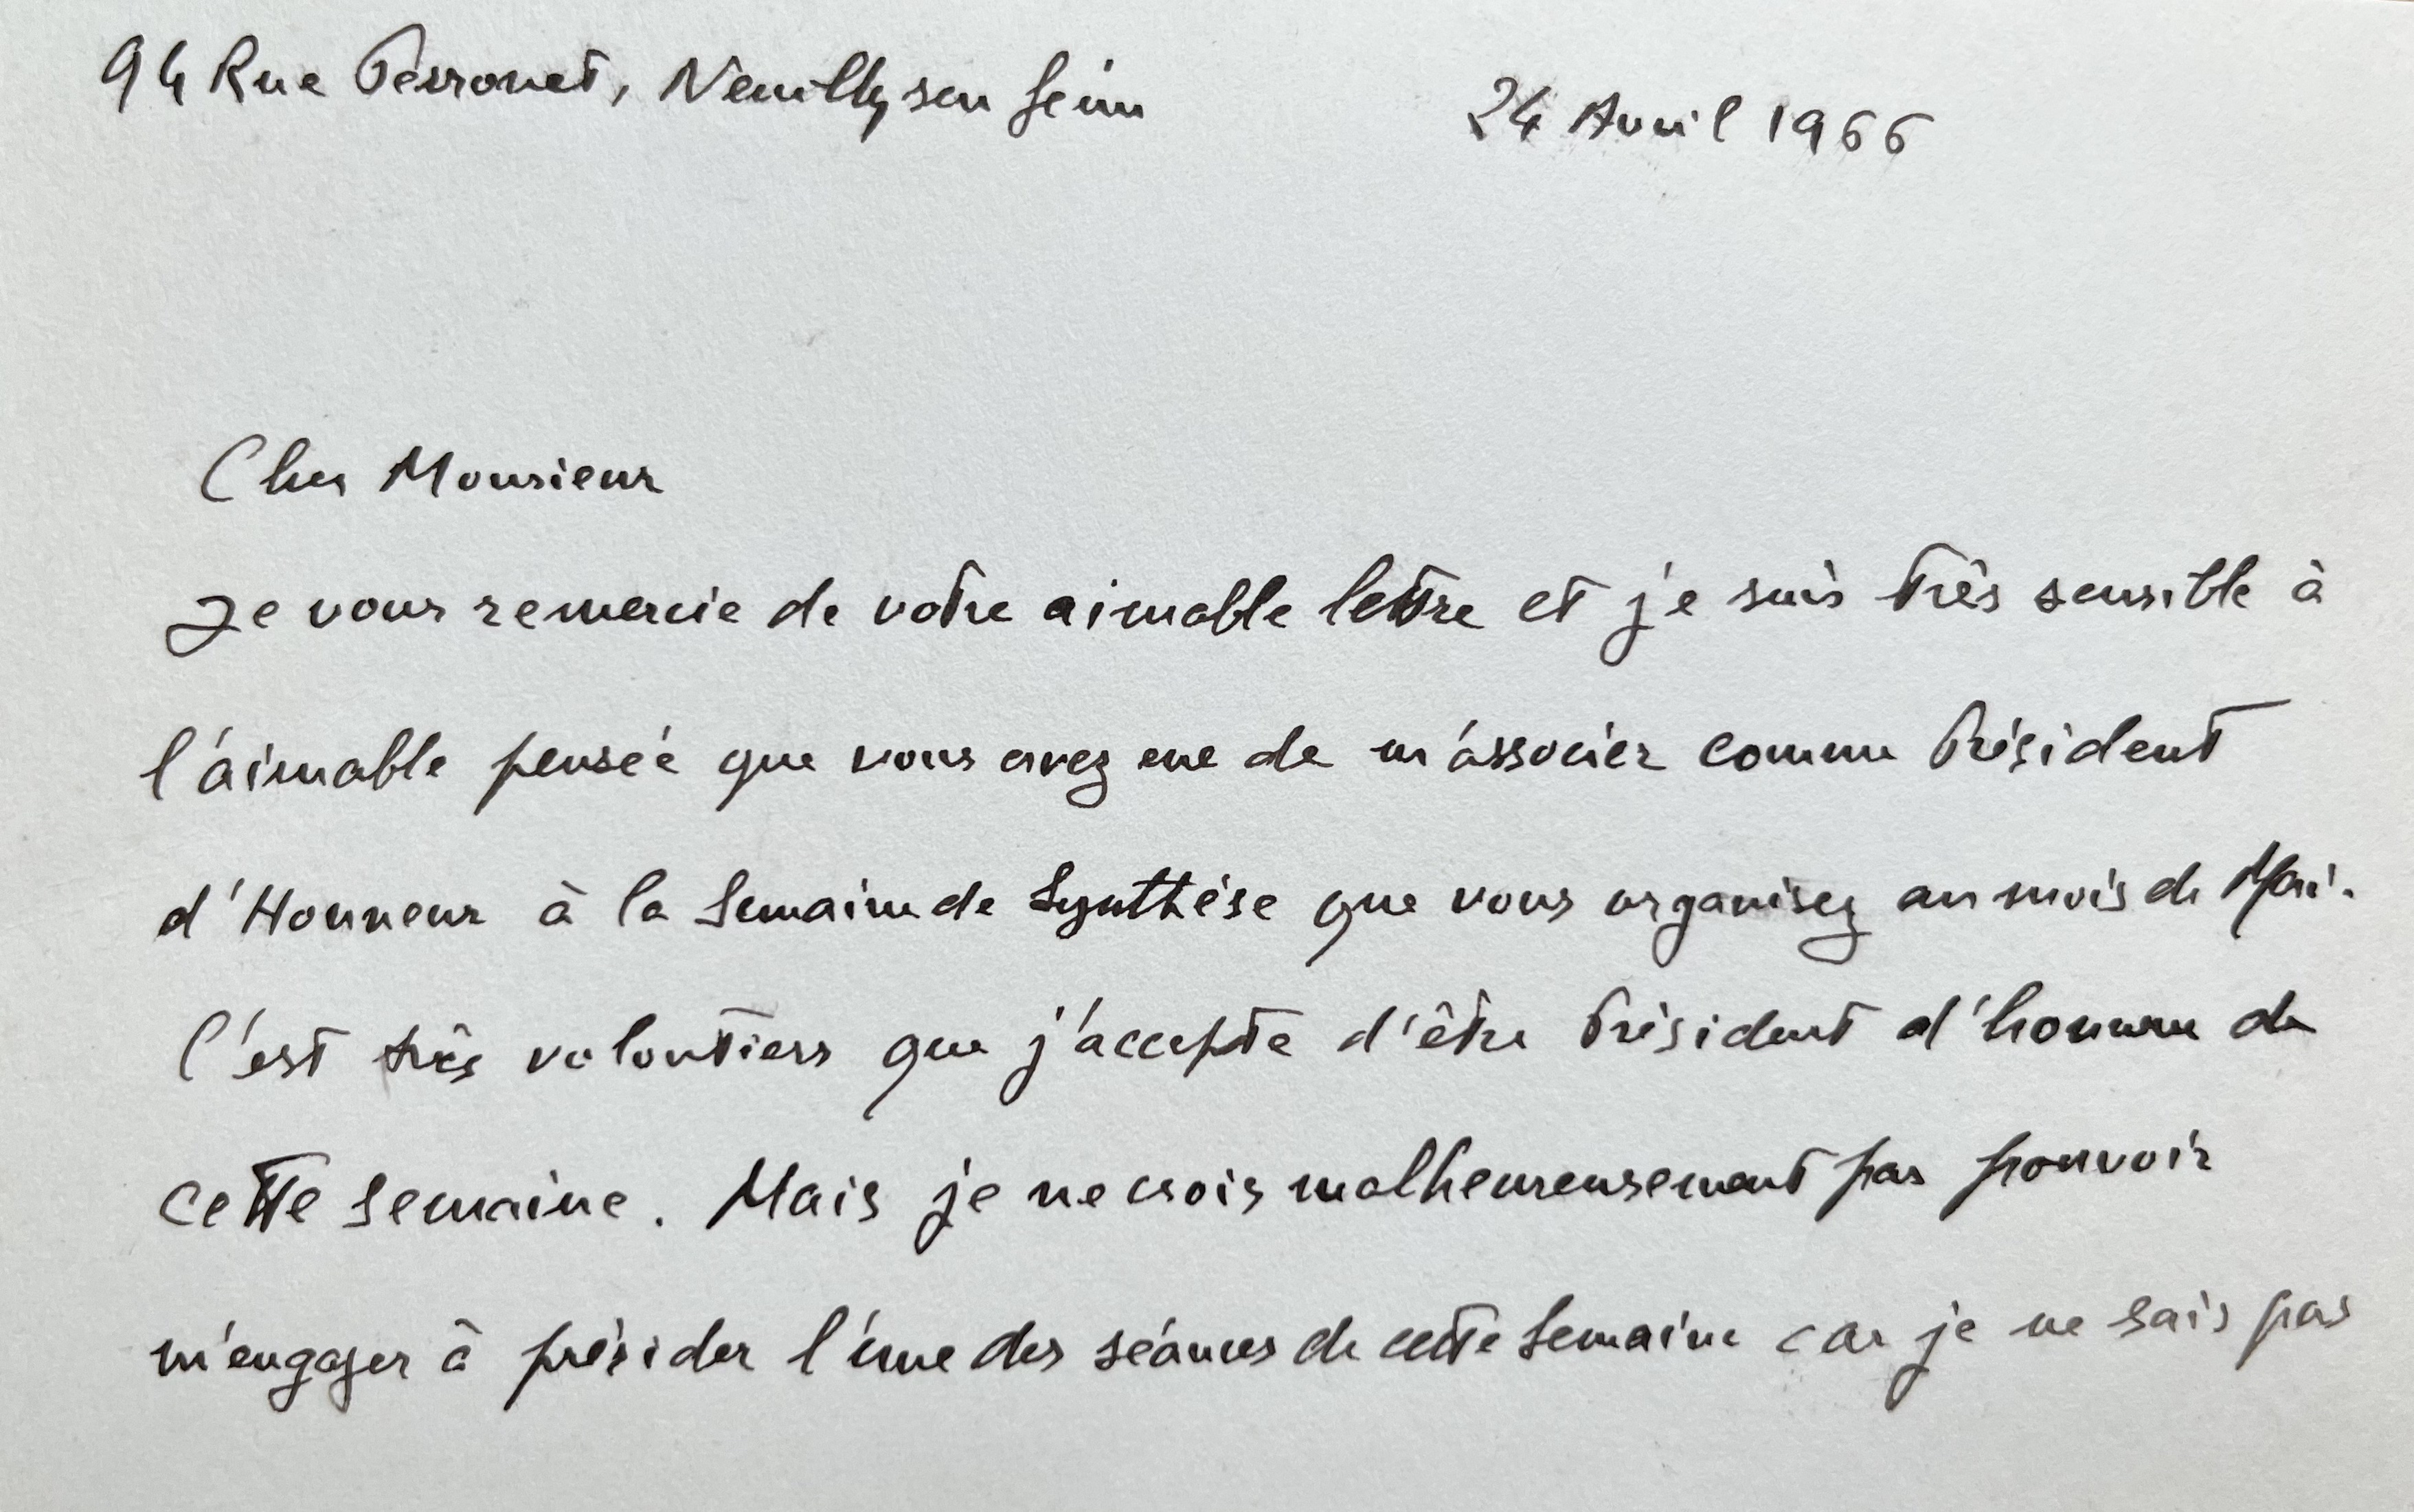 94 Rue Perronet, Neuilly sur Seine
24 Avril 1966
Cher Monsieur
Je vous remercie de votre aimable lettre et je suis très sensible à
l'aimable pensée que vous avez eue de m'associer comme Président
d'Honneur à la Semaine de Synthèse que vous organisez au mois de Mai.
C'est très volontiers que j'accepte d'être Président d'honneur de
cette semaine. Mais je ne crois malheureusement pas pouvoir
m'engager à présider l'une des séances de cette Semaine car je ne sais pas